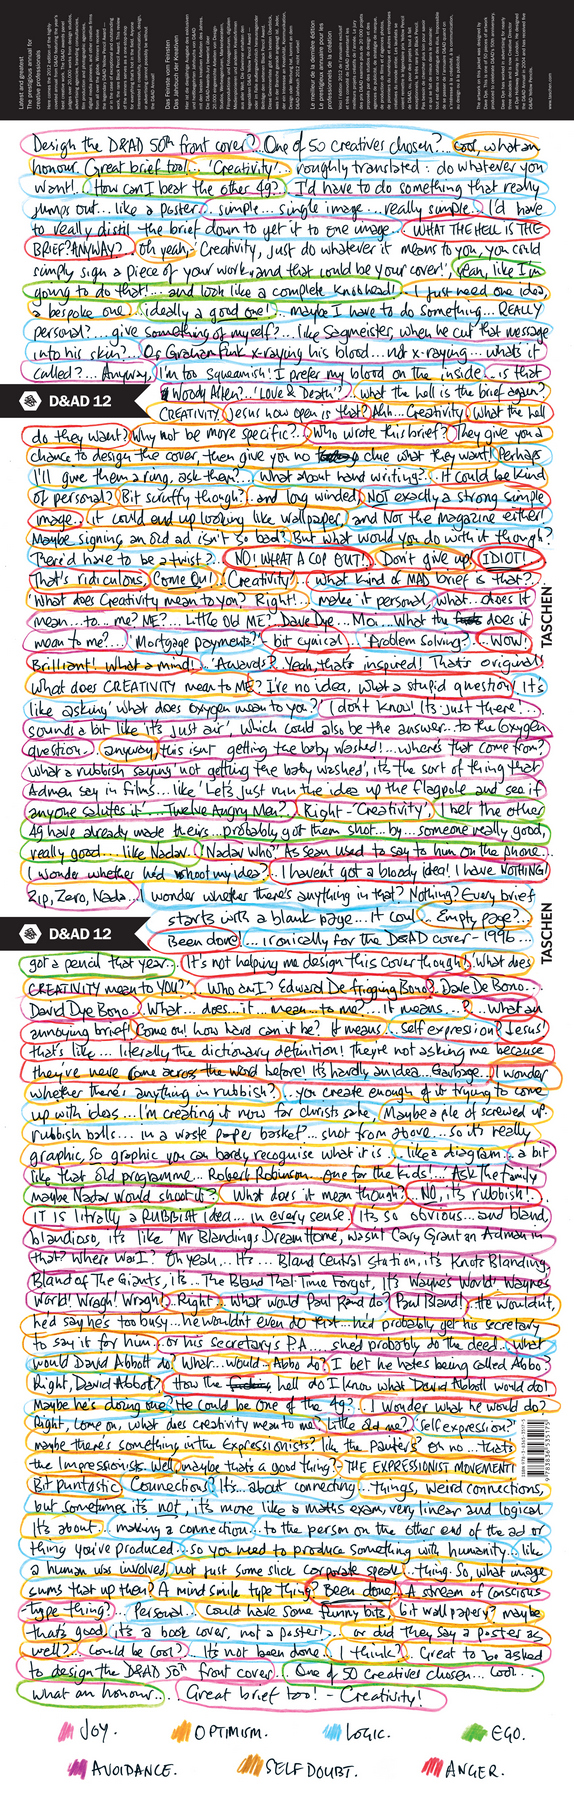 Latest and greatest
The prestigious annual for creative professionals
Das Feinste vom Feinsten
Das Jahrbuch der Kreativen
Le nec plus ultra de la dernière édition
Le prestigieux annuel pour les professionnels de la création
www.taschen.com
Design the D&AD 50th front cover?... One of 50 creatives chosen?... Cool, what an
honour. Great brief too!... 'Creativity'... roughly translated: do whatever you
want!... How can I beat the other 49?... I'd have to do something that really
jumps out... like a poster... simple... single image... really simple... I'd have
to really distil the brief down to get it to one image... WHAT THE HELL IS THE
BRIEF? ANYWAY?... Oh yeah,- 'Creativity, just do whatever it means to you, you could
simply sign a piece of your work, and that could be your cover!', Yeah, like I'm
going to do that!... and look like a complete knobhead!... I just need one idea,
a bespoke one... ideally a good one!... maybe I have to do something... REALLY
personal?... give something of myself?... like Sagmeister, when he cut that message
into his skin?... Or Graham Fink x-raying his blood... not x-raying... what's it
called?... Anyway, I'm too squeamish! I prefer my blood on the inside... is that
Woody Allen?... 'Love & Death'?... What the hell is the brief again?
D&AD 12
CREATIVITY. Jesus how open is that? Ahh... Creativity. What the hell
do they want? Why not be more specific?... Who wrote this brief? They give you a
chance to design the cover, then give you no clue what they want! Perhaps
I'll give them a ring, ask them?... What about hand writing?... it could be kind
of personal? Bit scruffy though?... and long winded. NOT exactly a strong simple
image... it could end up looking like wallpaper, and Not the magazine either!
Maybe signing an old ad isn't so bad? But what would you do with it though?
There'd have to be a twist?... NO! WHAT A COP OUT!... Don't give up! IDIOT!
That's ridiculous. Come On!... Creativity... What kind of MAD brief is that?...
'What does Creativity mean to you? Right!... make it personal, what... does it
mean... to... me? ME?... Little Old ME? Dave Dye... Moi... What the does it
mean to me?... 'Mortgage payments?'- bit cynical... 'Problem Solving?'... Wow!
Brilliant! What a mind!... 'Awards?' Yeah, that's inspired! That's original!
What does CREATIVITY mean to ME? I've no idea, what a stupid question, It's
like asking 'What does oxygen mean to you?' I don't know! It's just there!...
sounds a bit like 'it's just air', which could also be the answer... to the oxygen
question... anyway, this isn't getting the baby washed!... where's that come from?
What a rubbish saying 'not getting the baby washed', it's the sort of thing that
Admen say in films... like 'Let's just run the idea up the flagpole and see if
anyone salutes it'... Twelve Angry Men?... Right - Creativity... I bet the other
49 have already made theirs... probably got them shot... by... someone really good,
really good... like Nadav... 'Nadav Who' As Sean used to say to him on the phone...
I wonder whether he'd shoot my idea?... I haven't got a bloody idea! I have NOTHING!
Zip, Zero, Nada... I wonder whether there's anything in that? Nothing? Every brief
starts with a blank page... it could... Empty page?...
D&AD 12
Been done!... ironically for the D&AD cover - 1996...
got a pencil that year... It's not helping me design this cover though! 'What does
CREATIVITY mean to YOU?'... Who am I? Edward De frigging Bono? Dave De Bono...
David Dye Bono... What... does... it... mean... to me?... it means...?... What an
annoying brief! Come on! how hard can it be? It means... Self expression? Jesus!
that's like... literally the dictionary definition! They're not asking me because
they've never come across the word before! It's hardly an idea... Garbage... I wonder
whether there's anything in rubbish?... you create enough of it trying to come
up with ideas... I'm creating it now for christs sake, Maybe a pile of screwed up
rubbish balls... in a waste paper basket?... shot from above... so it's really
graphic, so graphic you can barely recognise what it is... like a diagram... a bit
like that old programme... Robert Robinson... one for the kids!... Ask The Family
maybe Nadav would shoot it?... What does it mean though?... NO, it's rubbish!...
IT IS litrally a RUBBISH idea... in every sense. It's so obvious... and bland,
blandioso, it's like 'Mr Blandings Dream Home, wasn't Cary Grant an Adman in
that? Where Was I? Oh yeah... It's... Bland Central Station, it's Knots Blanding,
Bland of The Giants, it's... The Bland That Time Forgot, it's Wayne's World! Waynes
World! Wragh! Wragh!... Right... What would Paul Rand do? Paul Island!... He wouldn't,
he'd say he's too busy... he wouldn't even do that... he'd probably get his secretary
to say it for him... or his secretary's P.A... she'd probably do the deed... What
would David Abbott do? What... would... Abbo do? I bet he hates being called Abbo?
Right, David Abbott?... How the hell do I know what David Abbott would do!
Maybe he's doing one? He could be One of the 49?... I wonder what he would do?
Right, come on, what does creativity mean to me? Little old me? Self expression?
maybe there's something in the Expressionists? like the Painters? oh no... That's
the Impressionists. Well maybe that's a good thing? - THE EXPRESSIONIST MOVEMENT!
Bit puntastic. Connections? It's about connecting... things, weird connections,
but sometimes it's not, it's more like a maths exam, very linear and logical.
It's about... making a connection... to the person on the other end of the ad or
thing you've produced... so you need to produce something with humanity... like
a human was involved, not just some slick corporate speak... thing. So, what image
sums that up then? A mind smile type thing? Been done. A stream of conscious
-type thing?... Personal... Could have some funny bits, bit wall papery? maybe
that's good, it's a book cover, not a poster!... or did they say a poster as
well?... Could be Cool?... It's not been done... I think?... Great to be asked
to design the D&AD 50th front cover... One of 50 creatives chosen... Cool...
what an honour... Great brief too! - Creativity!
TASCHEN
TASCHEN
ISBN 978-3-8365-3517-5
9783836535175
JOY.
OPTIMISM.
LOGIC.
EGO.
AVOIDANCE.
SELF DOUBT.
ANGER.